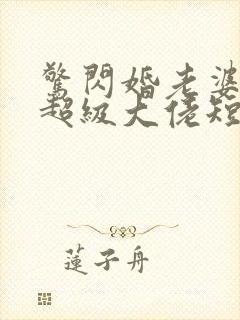 驚閃婚老婆
超級大佬短
蓮子舟